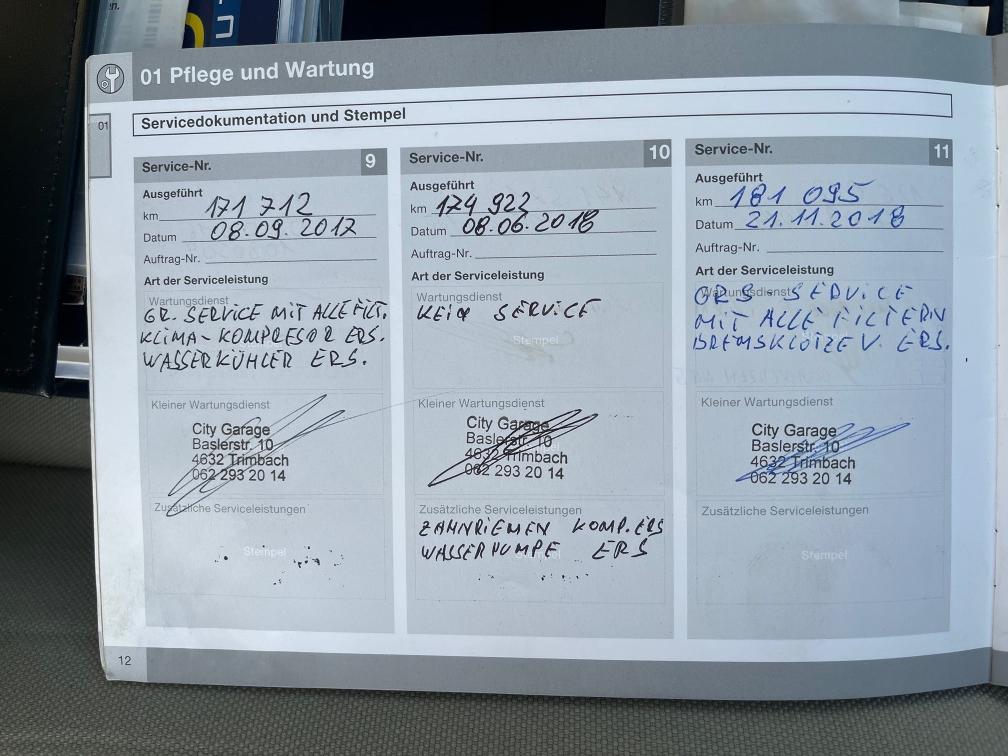 01 Pflege und Wartung
01
Servicedokumentation und Stempel
Service-Nr. 9
Ausgeführt
km 171 712
Datum 08.09.2017
Auftrag-Nr.
Art der Serviceleistung
Wartungsdienst
GR. SERVICE MIT ALLE FILT.
KLIMA-KOMPRESOR ERS.
WASSERKÜHLER ERS.
Kleiner Wartungsdienst
City Garage
Baslerstr. 10
4632 Trimbach
062 293 20 14
Zusätzliche Serviceleistungen
Stempel
Service-Nr. 10
Ausgeführt
km 174 922
Datum 08.06.2018
Auftrag-Nr.
Art der Serviceleistung
Wartungsdienst
KEIN SERVICE
Stempel
Kleiner Wartungsdienst
City Garage
Baslerstr. 10
4632 Trimbach
062 293 20 14
Zusätzliche Serviceleistungen
ZAHNRIEMEN KOMP. ERS
WASSERPUMPE ERS
Service-Nr. 11
Ausgeführt
km 181 095
Datum 21.11.2018
Auftrag-Nr.
Art der Serviceleistung
Wartungsdienst
GRS - SERVICE
MIT ALLE FILTERN
BREMSKLÖTZE V. ERS.
Kleiner Wartungsdienst
City Garage
Baslerstr. 10
4632 Trimbach
062 293 20 14
Zusätzliche Serviceleistungen
Stempel
12